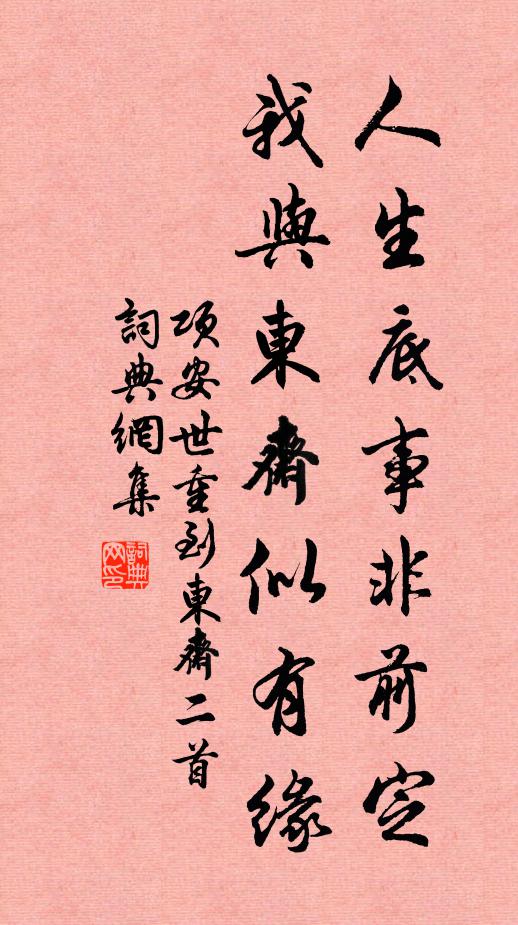 人生底事非前定
我與東齋似有緣
項安世重到東齋二首
詞典網集
詞典網印